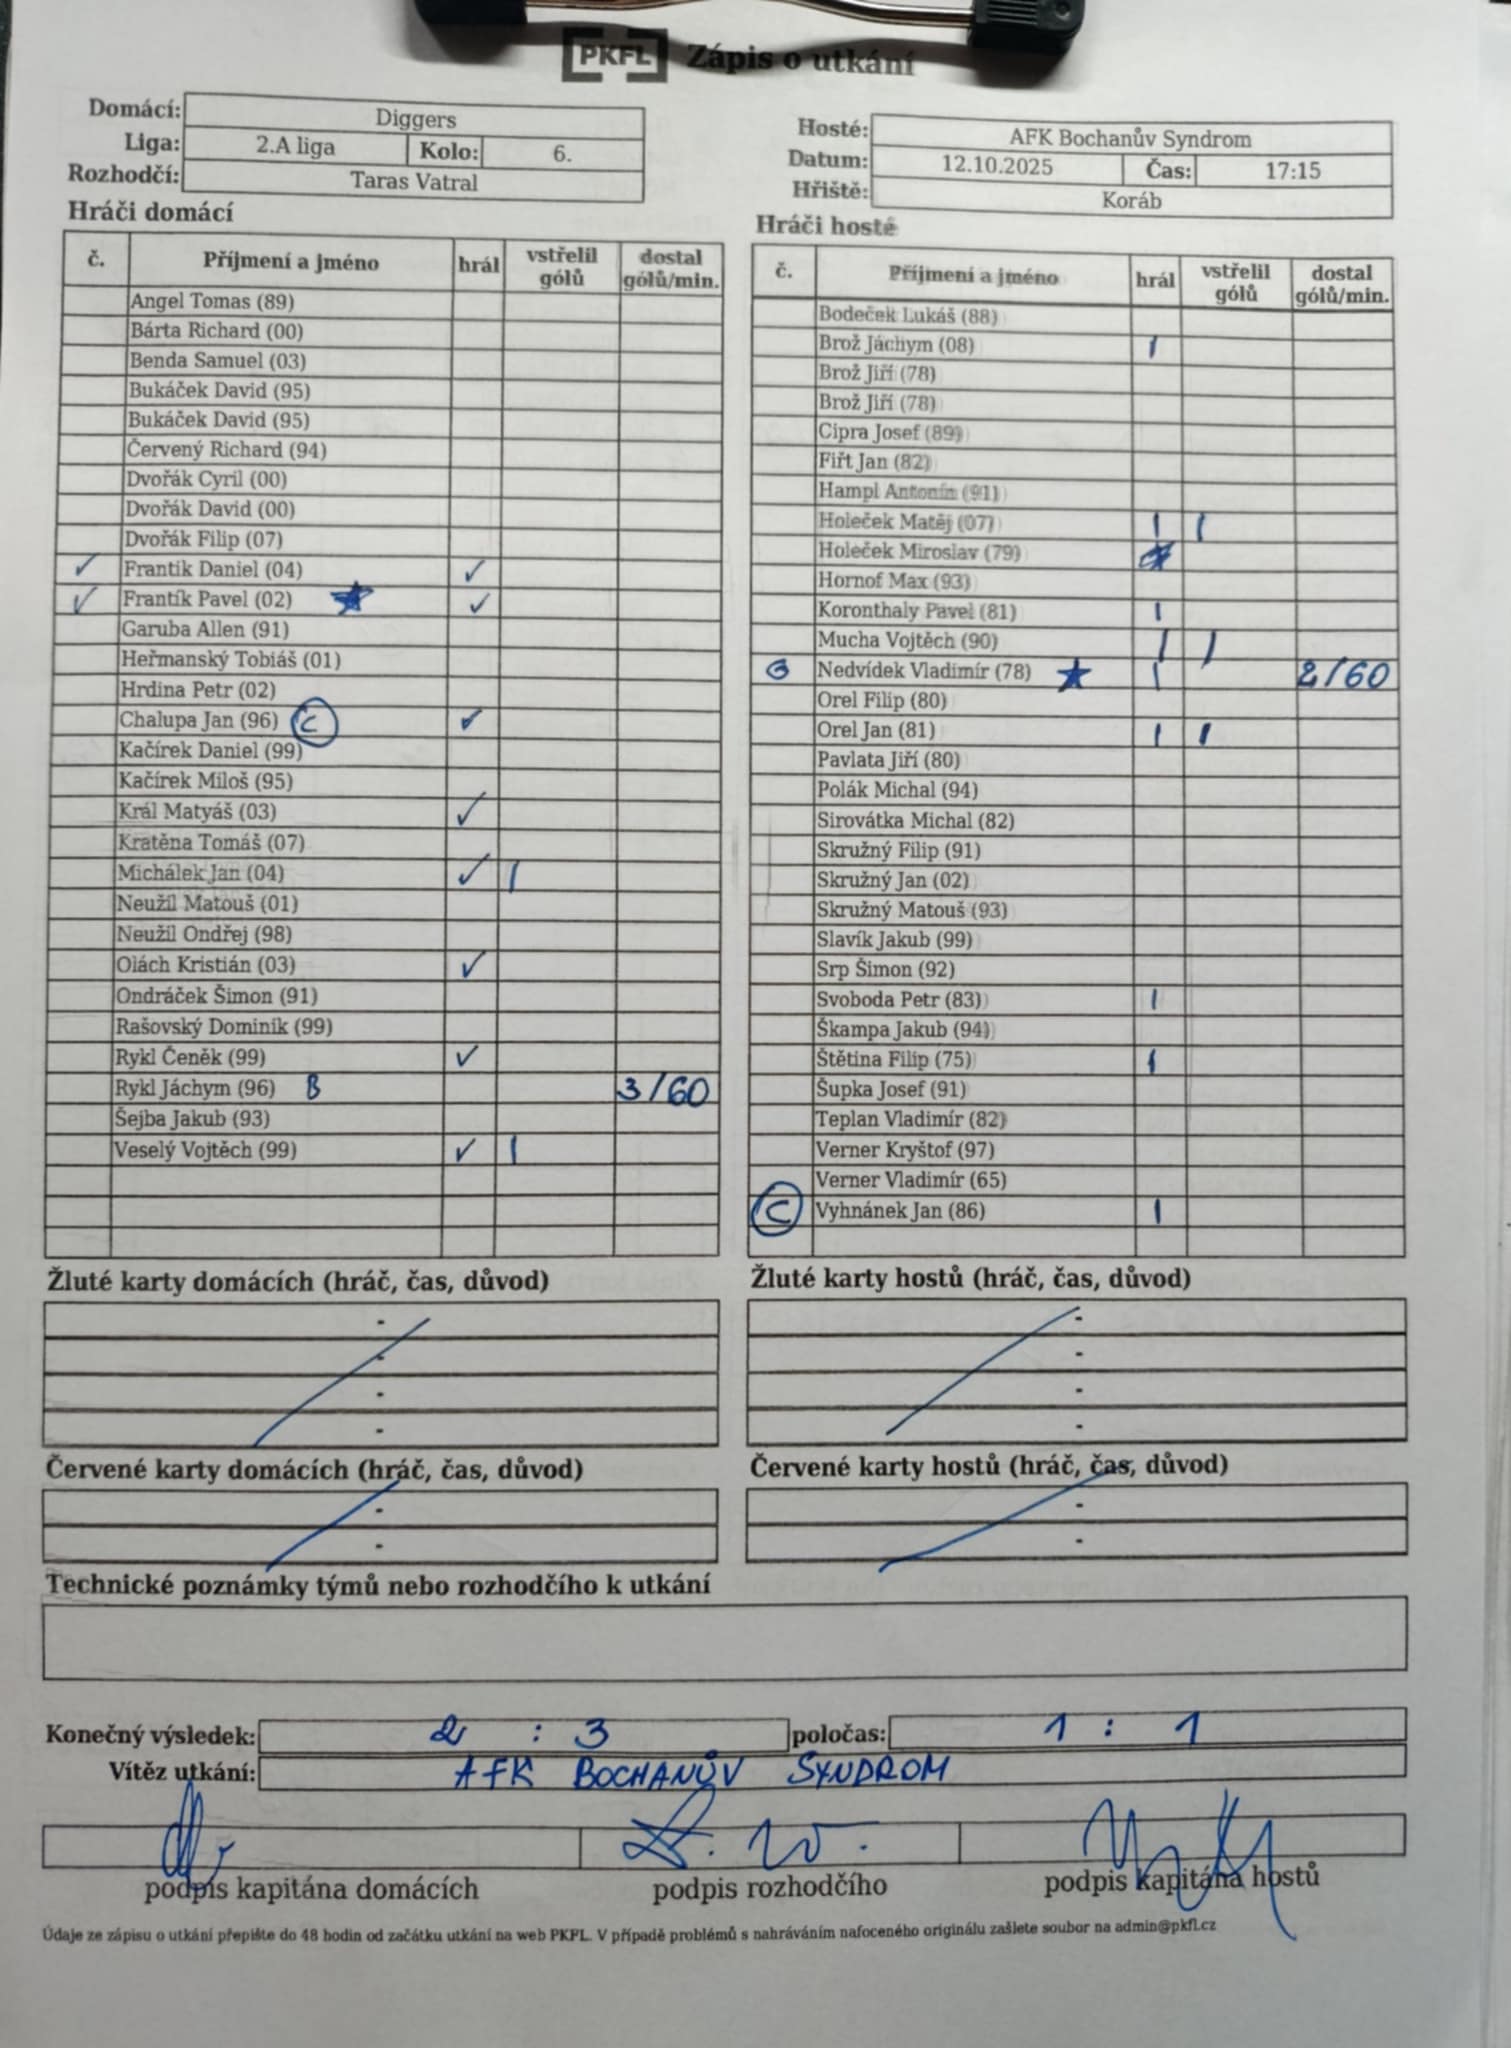 PKFL Zápis o utkání
Domácí: Diggers
Liga: 2.A liga Kolo: 6.
Rozhodčí: Taras Vatral
Hosté: AFK Bochanův Syndrom
Datum: 12.10.2025 Čas: 17:15
Hřiště: Koráb
Hráči domácí
č. Příjmení a jméno hrál vstřelil gólů dostal gólů/min.
Angel Tomas (89)
Bárta Richard (00)
Benda Samuel (03)
Bukáček David (95)
Bukáček David (95)
Červený Richard (94)
Dvořák Cyril (00)
Dvořák David (00)
Dvořák Filip (07)
✓ Frantik Daniel (04) ✓
✓ Frantík Pavel (02) ★ ✓
Garuba Allen (91)
Heřmanský Tobiáš (01)
Hrdina Petr (02)
Chalupa Jan (96) C ✓
Kačírek Daniel (99)
Kačírek Miloš (95)
Král Matyáš (03) ✓
Kratěna Tomáš (07)
Michálek Jan (04) ✓ |
Neužil Matouš (01)
Neužil Ondřej (98)
Olách Kristián (03) ✓
Ondráček Šimon (91)
Rašovský Dominik (99)
Rykl Čeněk (99) ✓
Rykl Jáchym (96) B 3/60
Šejba Jakub (93)
Veselý Vojtěch (99) ✓ |
Hráči hosté
č. Příjmení a jméno hrál vstřelil gólů dostal gólů/min.
Bodeček Lukáš (88)
Brož Jáchym (08) |
Brož Jiří (78)
Brož Jiří (78)
Cipra Josef (89)
Fiřt Jan (82)
Hampl Antonín (91)
Holeček Matěj (07) | |
Holeček Miroslav (79)
Hornof Max (93)
Koronthaly Pavel (81) |
Mucha Vojtěch (90) | |
G Nedvídek Vladimír (78) ★ | 2/60
Orel Filip (80)
Orel Jan (81) | |
Pavlata Jiří (80)
Polák Michal (94)
Sirovátka Michal (82)
Skružný Filip (91)
Skružný Jan (02)
Skružný Matouš (93)
Slavík Jakub (99)
Srp Šimon (92)
Svoboda Petr (83) |
Škampa Jakub (94)
Štětina Filip (75) |
Šupka Josef (91)
Teplan Vladimír (82)
Verner Kryštof (97)
Verner Vladimír (65)
C Vyhnánek Jan (86) |
Žluté karty domácích (hráč, čas, důvod)
-
-
-
-
Žluté karty hostů (hráč, čas, důvod)
-
-
-
-
Červené karty domácích (hráč, čas, důvod)
-
-
Červené karty hostů (hráč, čas, důvod)
-
-
Technické poznámky týmů nebo rozhodčího k utkání
Konečný výsledek: 2 : 3 poločas: 1 : 1
Vítěz utkání: AFK BOCHANŮV SYNDROM
podpis kapitána domácích podpis rozhodčího podpis kapitána hostů
Údaje ze zápisu o utkání přepište do 48 hodin od začátku utkání na web PKFL. V případě problémů s nahráváním nafoceného originálu zašlete soubor na admin@pkfl.cz